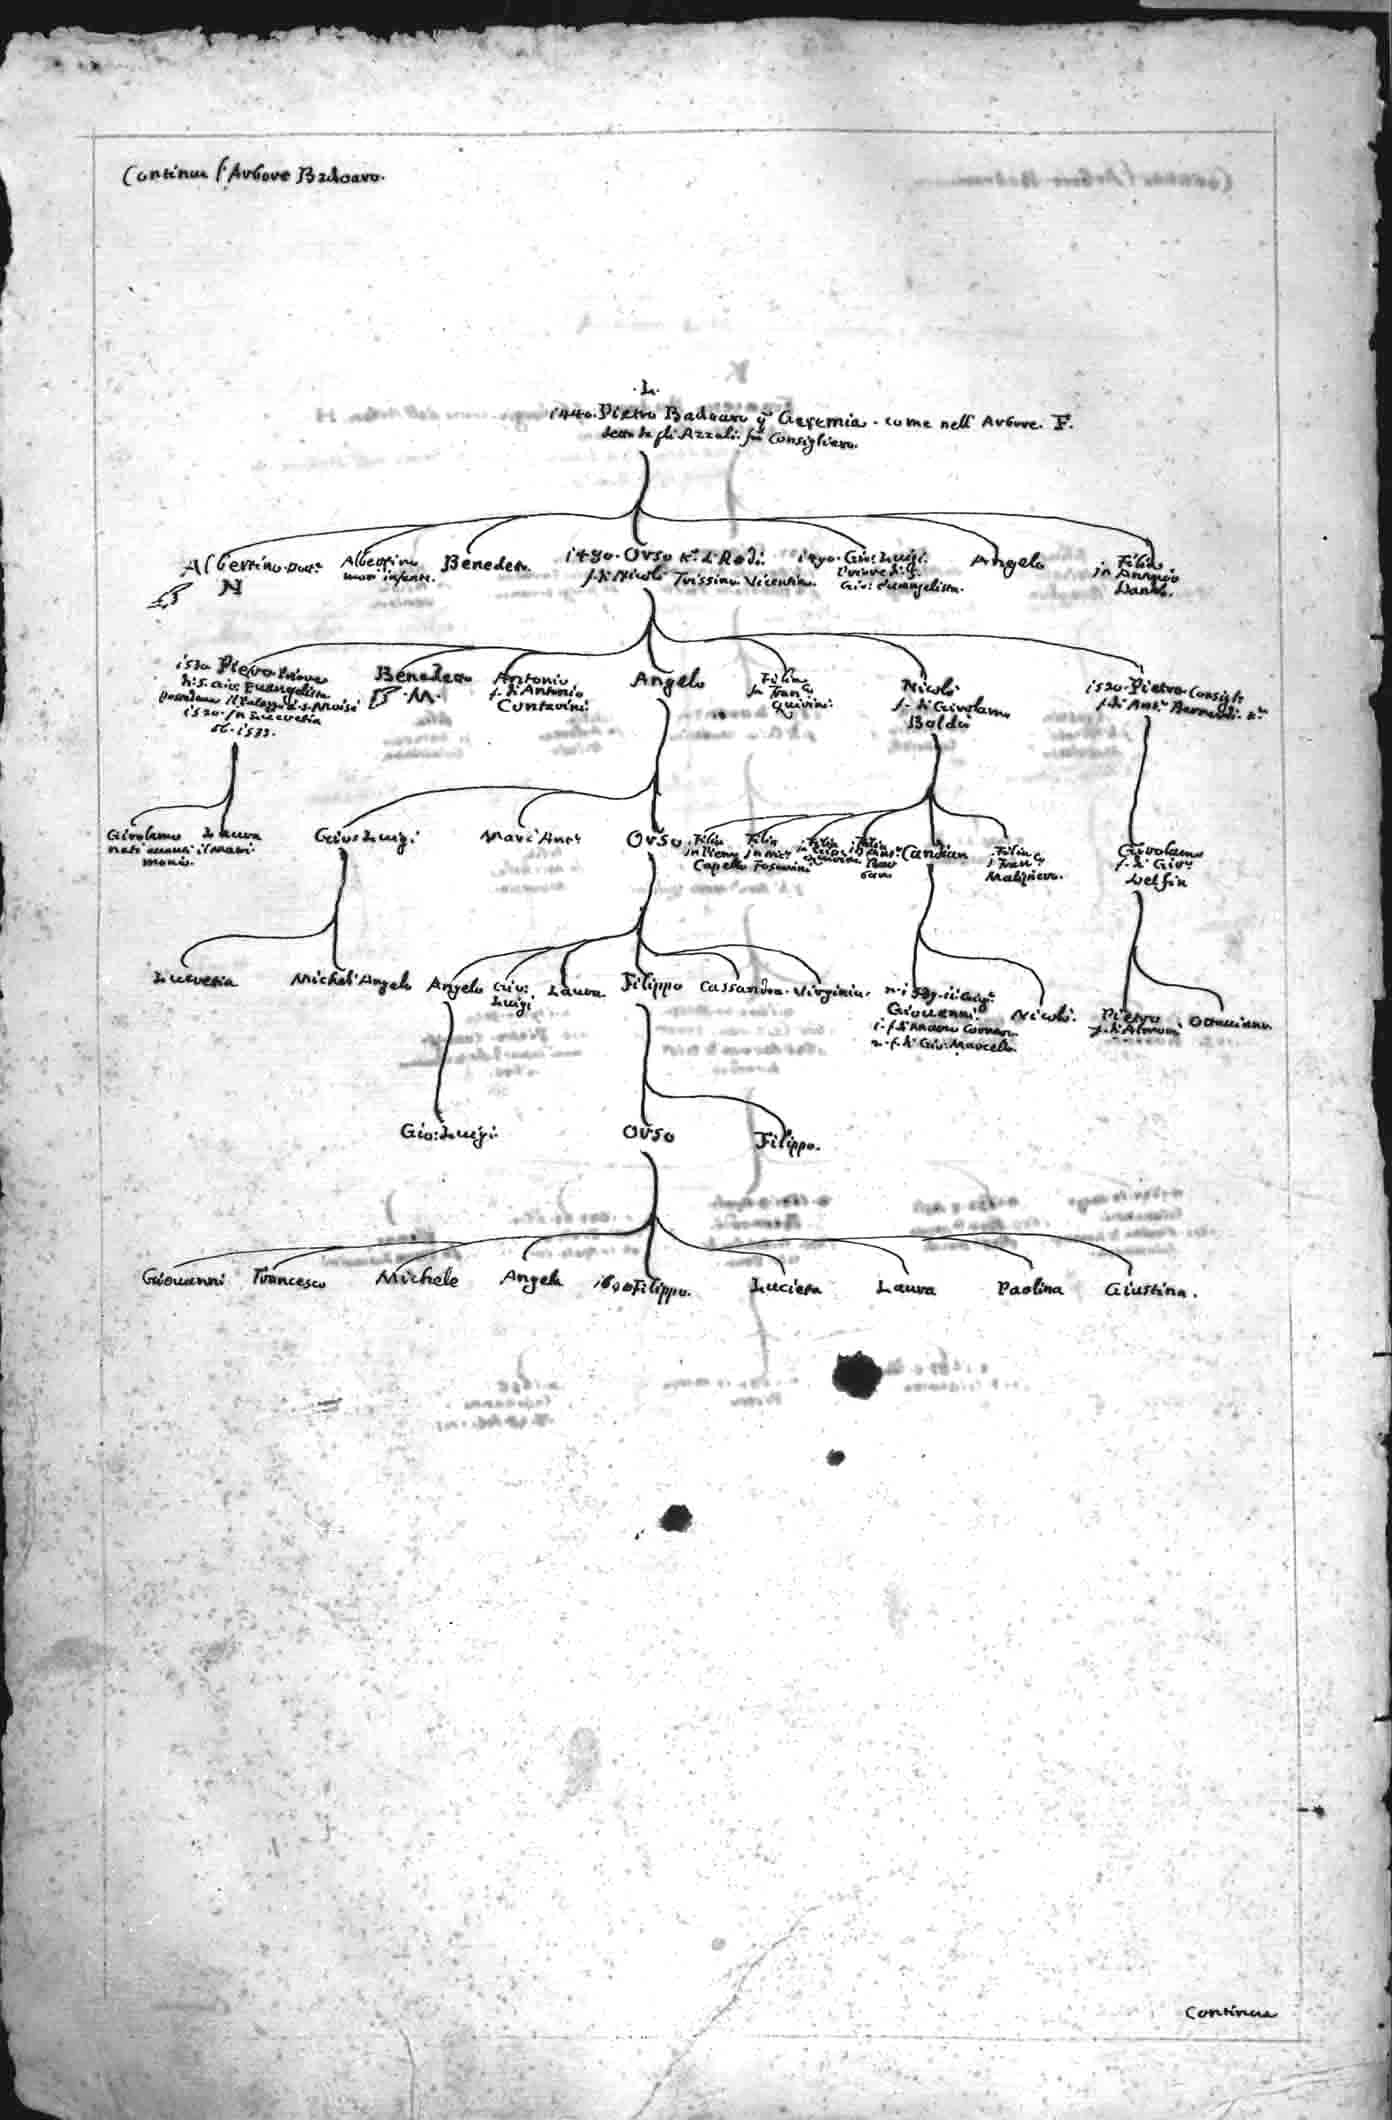 Continua l'Arbore Badoaro.
.L.
1440. Pietro Badoaro q.m Geremia. come nell' Arbore. F.
detto de gli Azzali. fu Consigliero.
Albertino Dott.r
N
Albertino
morì infante.
Benedetto
1480. Orso K.r di Rodi.
f. di Nicolò Trissino Vicentin.
1490. Gio: Luigi.
Priore di S.
Gio: Euangelista.
Angelo
Filia
in Antonio
Dandolo.
1530 Pietro Priore
di S. Gio: Euangelista
1520. in Lucretia
Benedetto
M.
Antonio
f. di Antonio
Contarini
Angelo
Filia
in Fran.co
Quirini
Nicolò
f. di Girolamo
Boldù
1520. Pietro Consigl.r
f. di Ant.o Bernardi K.r
Girolamo Laura
nati auanti il matri
monio.
Gio: Luigi
Marc'Ant.o
Orso
Filia
in Piero
Capello
Filia
in Nic.o
Foscarini
Filia
Filia
Candian
Filia
Malipiero.
Girolamo
f. di Gio:
Delfin
Lucretia
Michel'Angelo
Angelo
Gio:
Luigi
Laura
Filippo
Cassandra.
Virginia.
Giouanni
1. f. di Marco Corner
2. f. di Gio: Marcello.
Nicolò.
Pietro
Ottauiano.
Gio: Luigi
Orso
Filippo.
Giouanni
Francesco
Michele
Angela
1600 Filippo.
Luciera
Laura
Paolina
Giustina.
Continua